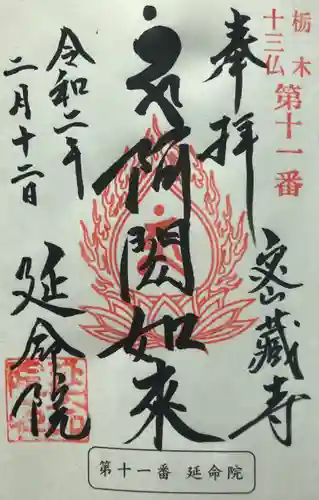 栃木
十三仏
第十一番
奉拝
密蔵寺
阿閦如来
令和二年
二月十二日
延命院
第十一番 延命院